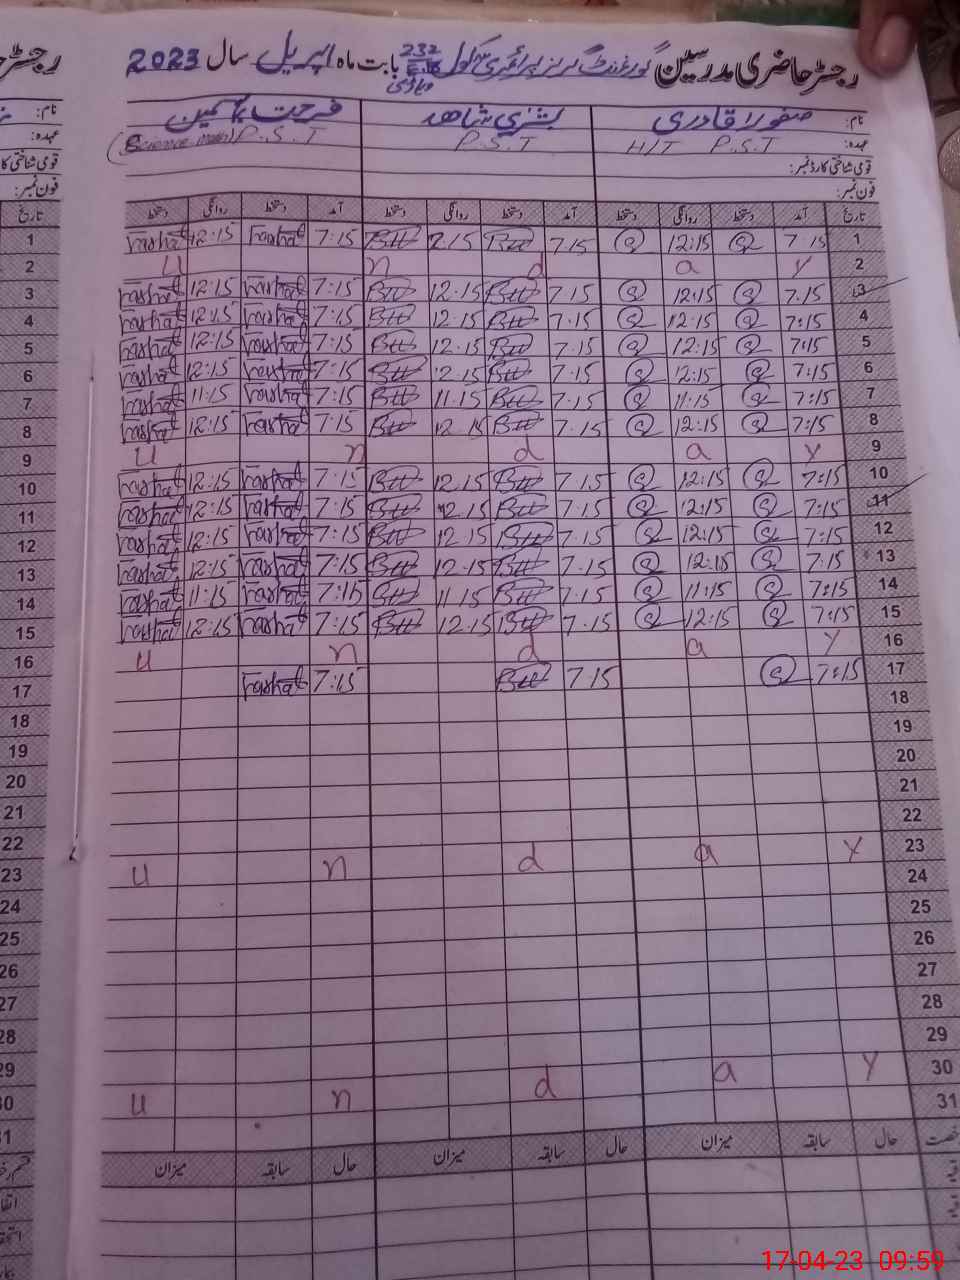 رجسٹر حاضری مدرسین گورنمنٹ گرلز پرائمری سکول 232 بابت ماہ اپریل سال 2023
نام: صفورا قادری بشریٰ شاھد فرحت یاسمین
عہدہ: H/T P.S.T P.S.T P.S.T (Science math)
قومی شناختی کارڈ نمبر:
فون نمبر:
تاریخ آمد دستخط روانگی دستخط آمد دستخط روانگی دستخط آمد دستخط روانگی دستخط
1 7:15 12:15 7.15 7.15 7:15 Farhat 12:15 Farhat 1
2 y a d n u 2
3 7:15 12:15 7.15 12.15 7:15 Farhat 12:15 Farhat 3
4 7:15 12:15 7.15 12.15 7:15 Farhat 12:15 Farhat 4
5 7:15 12:15 7.15 12.15 7:15 Farhat 12:15 Farhat 5
6 7:15 12:15 7.15 12.15 7:15 Farhat 12:15 Farhat 6
7 7:15 11:15 7.15 11.15 7:15 Farhat 11:15 Farhat 7
8 7:15 12:15 7.15 12.15 7:15 Farhat 12:15 Farhat 8
9 y a d n u 9
10 7:15 12:15 7.15 12.15 7:15 Farhat 12:15 Farhat 10
11 7:15 12:15 7.15 12.15 7:15 Farhat 12:15 Farhat 11
12 7:15 12:15 7.15 12.15 7:15 Farhat 12:15 Farhat 12
13 7:15 12:15 7.15 12.15 7:15 Farhat 12:15 Farhat 13
14 7:15 11:15 7.15 11.15 7:15 Farhat 11:15 Farhat 14
15 7:15 12:15 7.15 12.15 7:15 Farhat 12:15 Farhat 15
16 y a d n u 16
17 7:15 7.15 7:15 Farhat 17
18 18
19 19
20 20
21 21
22 22
23 y a d n u 23
24 24
25 25
26 26
27 27
28 28
29 29
30 y a d n u 30
31 31
حال سابقہ میزان حال سابقہ میزان حال سابقہ میزان
17-04-23 09:59